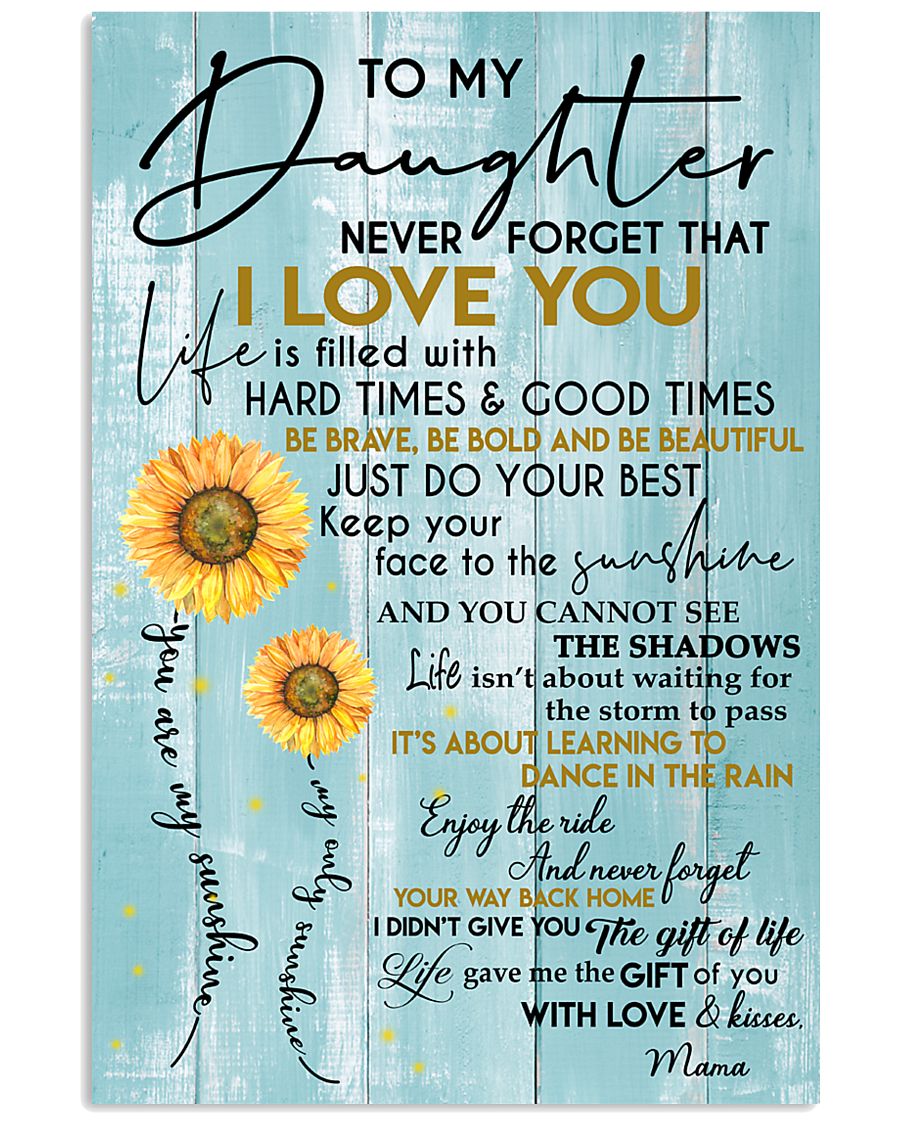 TO MY
Daughter
NEVER FORGET THAT
I LOVE YOU
Life is filled with
HARD TIMES & GOOD TIMES
BE BRAVE, BE BOLD AND BE BEAUTIFUL
JUST DO YOUR BEST
Keep your
face to the sunshine
AND YOU CANNOT SEE
THE SHADOWS
Life isn't about waiting for
the storm to pass
IT'S ABOUT LEARNING TO
DANCE IN THE RAIN
Enjoy the ride
And never forget
YOUR WAY BACK HOME
I DIDN'T GIVE YOU The gift of life
Life gave me the GIFT of you
WITH LOVE & kisses,
Mama
you are my sunshine
my only sunshine